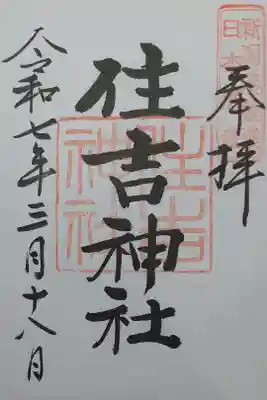 奉拝
住吉神社
令和七年三月十八日
住吉
神社